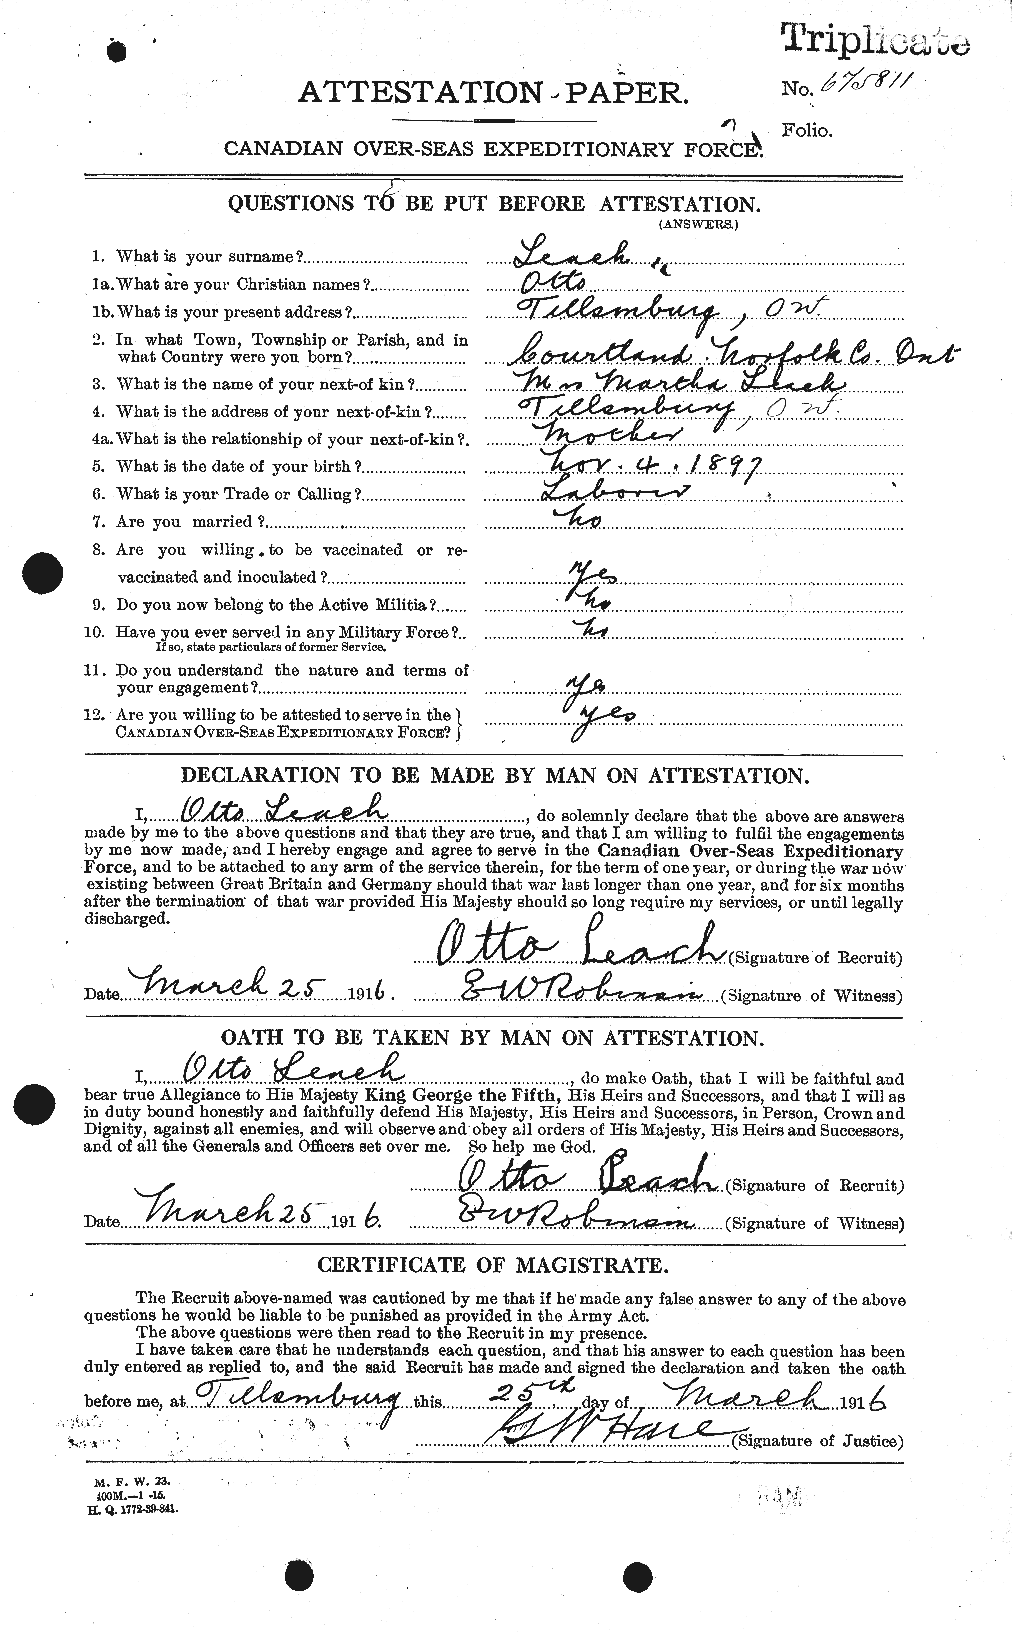 Triplicate
ATTESTATION PAPER.
No. 675811
Folio.
CANADIAN OVER-SEAS EXPEDITIONARY FORCE.
QUESTIONS TO BE PUT BEFORE ATTESTATION.
(ANSWERS.)
1. What is your surname?.......... Leach
1a. What are your Christian names?.......... Otto
1b. What is your present address?.......... Tillsonburg, Ont.
2. In what Town, Township or Parish, and in
what Country were you born?.......... Courtland Norfolk Co. Ont
3. What is the name of your next-of kin?.......... Mrs Martha Leach
4. What is the address of your next-of-kin?....... Tillsonburg, Ont.
4a. What is the relationship of your next-of-kin?. Mother
5. What is the date of your birth?.......... Nov. 4. 1897
6. What is your Trade or Calling?.......... Laborer
7. Are you married?.......... No
8. Are you willing to be vaccinated or re-
vaccinated and inoculated?.......... Yes
9. Do you now belong to the Active Militia?...... No
10. Have you ever served in any Military Force?.. No
If so, state particulars of former Service.
11. Do you understand the nature and terms of
your engagement?.......... Yes
12. Are you willing to be attested to serve in the
CANADIAN OVER-SEAS EXPEDITIONARY FORCE? } yes
DECLARATION TO BE MADE BY MAN ON ATTESTATION.
I, Otto Leach, do solemnly declare that the above are answers
made by me to the above questions and that they are true, and that I am willing to fulfil the engagements
by me now made, and I hereby engage and agree to serve in the Canadian Over-Seas Expeditionary
Force, and to be attached to any arm of the service therein, for the term of one year, or during the war now
existing between Great Britain and Germany should that war last longer than one year, and for six months
after the termination of that war provided His Majesty should so long require my services, or until legally
discharged.
Otto Leach (Signature of Recruit)
Date March 25 1916. E W Robinson (Signature of Witness)
OATH TO BE TAKEN BY MAN ON ATTESTATION.
I, Otto Leach, do make Oath, that I will be faithful and
bear true Allegiance to His Majesty King George the Fifth, His Heirs and Successors, and that I will as
in duty bound honestly and faithfully defend His Majesty, His Heirs and Successors, in Person, Crown and
Dignity, against all enemies, and will observe and obey all orders of His Majesty, His Heirs and Successors,
and of all the Generals and Officers set over me. So help me God.
Otto Leach (Signature of Recruit)
Date March 25 1916. E W Robinson (Signature of Witness)
CERTIFICATE OF MAGISTRATE.
The Recruit above-named was cautioned by me that if he made any false answer to any of the above
questions he would be liable to be punished as provided in the Army Act.
The above questions were then read to the Recruit in my presence.
I have taken care that he understands each question, and that his answer to each question has been
duly entered as replied to, and the said Recruit has made and signed the declaration and taken the oath
before me, at Tillsonburg this 25th day of March 1916
G W Hare (Signature of Justice)
M. F. W. 23.
400M.—1-15.
H. Q. 1772-39-841.